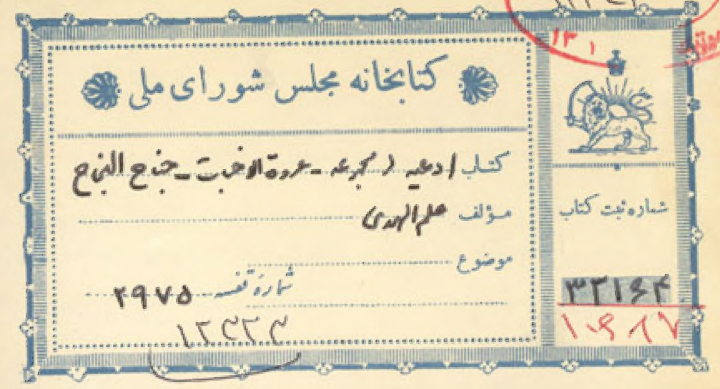 کتابخانه مجلس شورای ملی
کتاب ادعیه / مجموعه - عروة الاخبات - جناح النجاح
مؤلف علم الهدی
موضوع
شماره قفسه ۲۹۷۵
۱۲۳۲۳
شماره ثبت کتاب
۳۲۱۶۴
۱۰۶۸۷
۱۳۱